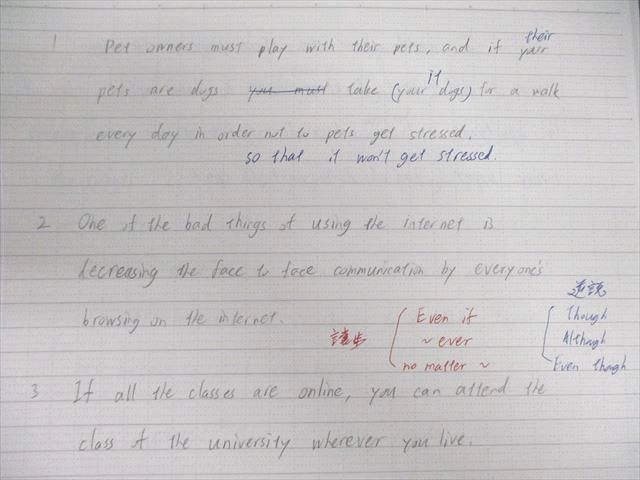 their
1 Pet owners must play with their pets, and if your
it
pets are dogs you must take (your dogs) for a walk
every day in order not to pets get stressed.
so that it won't get stressed.
2 One of the bad things of using the internet is
decreasing the face to face communication by everyone's
browsing on the internet.
譲歩
Even if
~ ever
no matter ~
逆説
Though
Although
Even though
3 If all the classes are online, you can attend the
class of the university wherever you live.